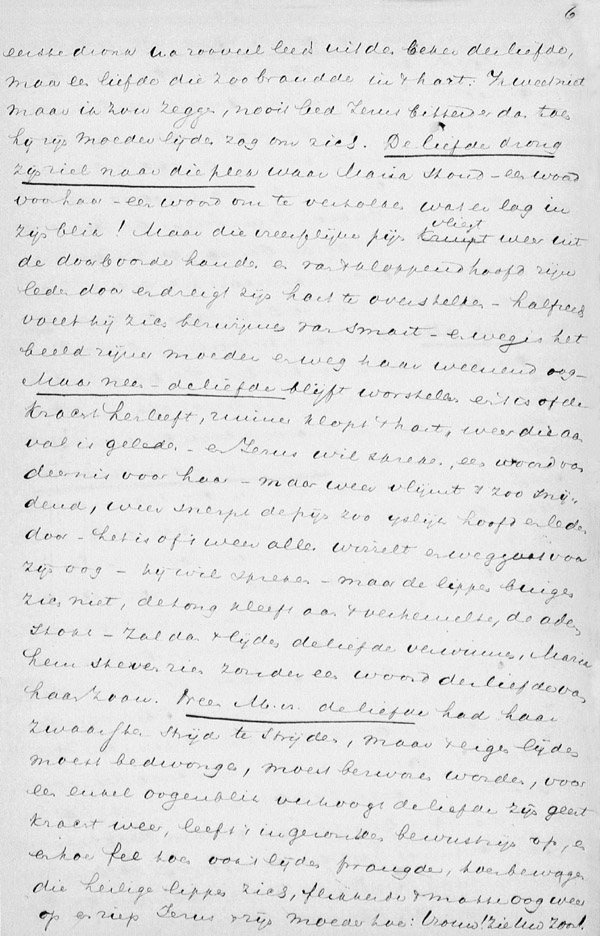 6
eerste dronk na zooveel leed uit den beker der liefde,
maar een liefde die zoo brandde in 't hart. Ik weet niet
maar ik zou zeggen, nooit leed Jezus bitterder dan toen
hij zijn moeder lijden zag om zich. De liefde drong
zijn ziel naar die plek waar Maria stond – een woord
voor haar – een woord om te vertolken wat er lag in
zijn blik! Maar die vreeslijke pijn vliegt weer uit
de doorboorde handen en van 't kloppend hoofd zijn
leden door en dreigt zijn hart te overstelpen – half reeds
voelt hij zich bezwijmen van smart – en weg is het
beeld zijner moeder en weg haar weenend oog –
Maar neen – de liefde blijft worstelen en 't is of de
kracht herleeft, ruimer klopt 't hart, weer die aan
val is geleden – en Jezus wil spreken, een woord van
deernis voor haar – maar weer vlijmt 't zoo snij-
dend, weer snerpt de pijn zoo ijslijk hoofd en leden
door – het is of 't weer alles wirrelt en weggaat voor
zijn oog – hij wil spreken – maar de lippen buigen
zich niet, de tong kleeft aan 't verhemelte, de adem
stokt – zal dan 't lijden de liefde verwinnen, Maria
hem sterven zien zonder een woord der liefde van
haar zoon. Neen M. v. de liefde had haar
zwaarsten strijd te strijden, maar 't eigen lijden
moest bedwongen, moest verworven worden, voor
een enkel oogenblik verhoogt de liefde zijn geest
kracht weer, leeft 't ingezonken bewustzijn op, en
en hoe fel toen ook 't lijden prangde, toen bewogen
die heilige lippen zich, flikkerde 't matte oog weer
op en riep Jezus zijn moeder toe: Vrouw! zie Uw Zoon!